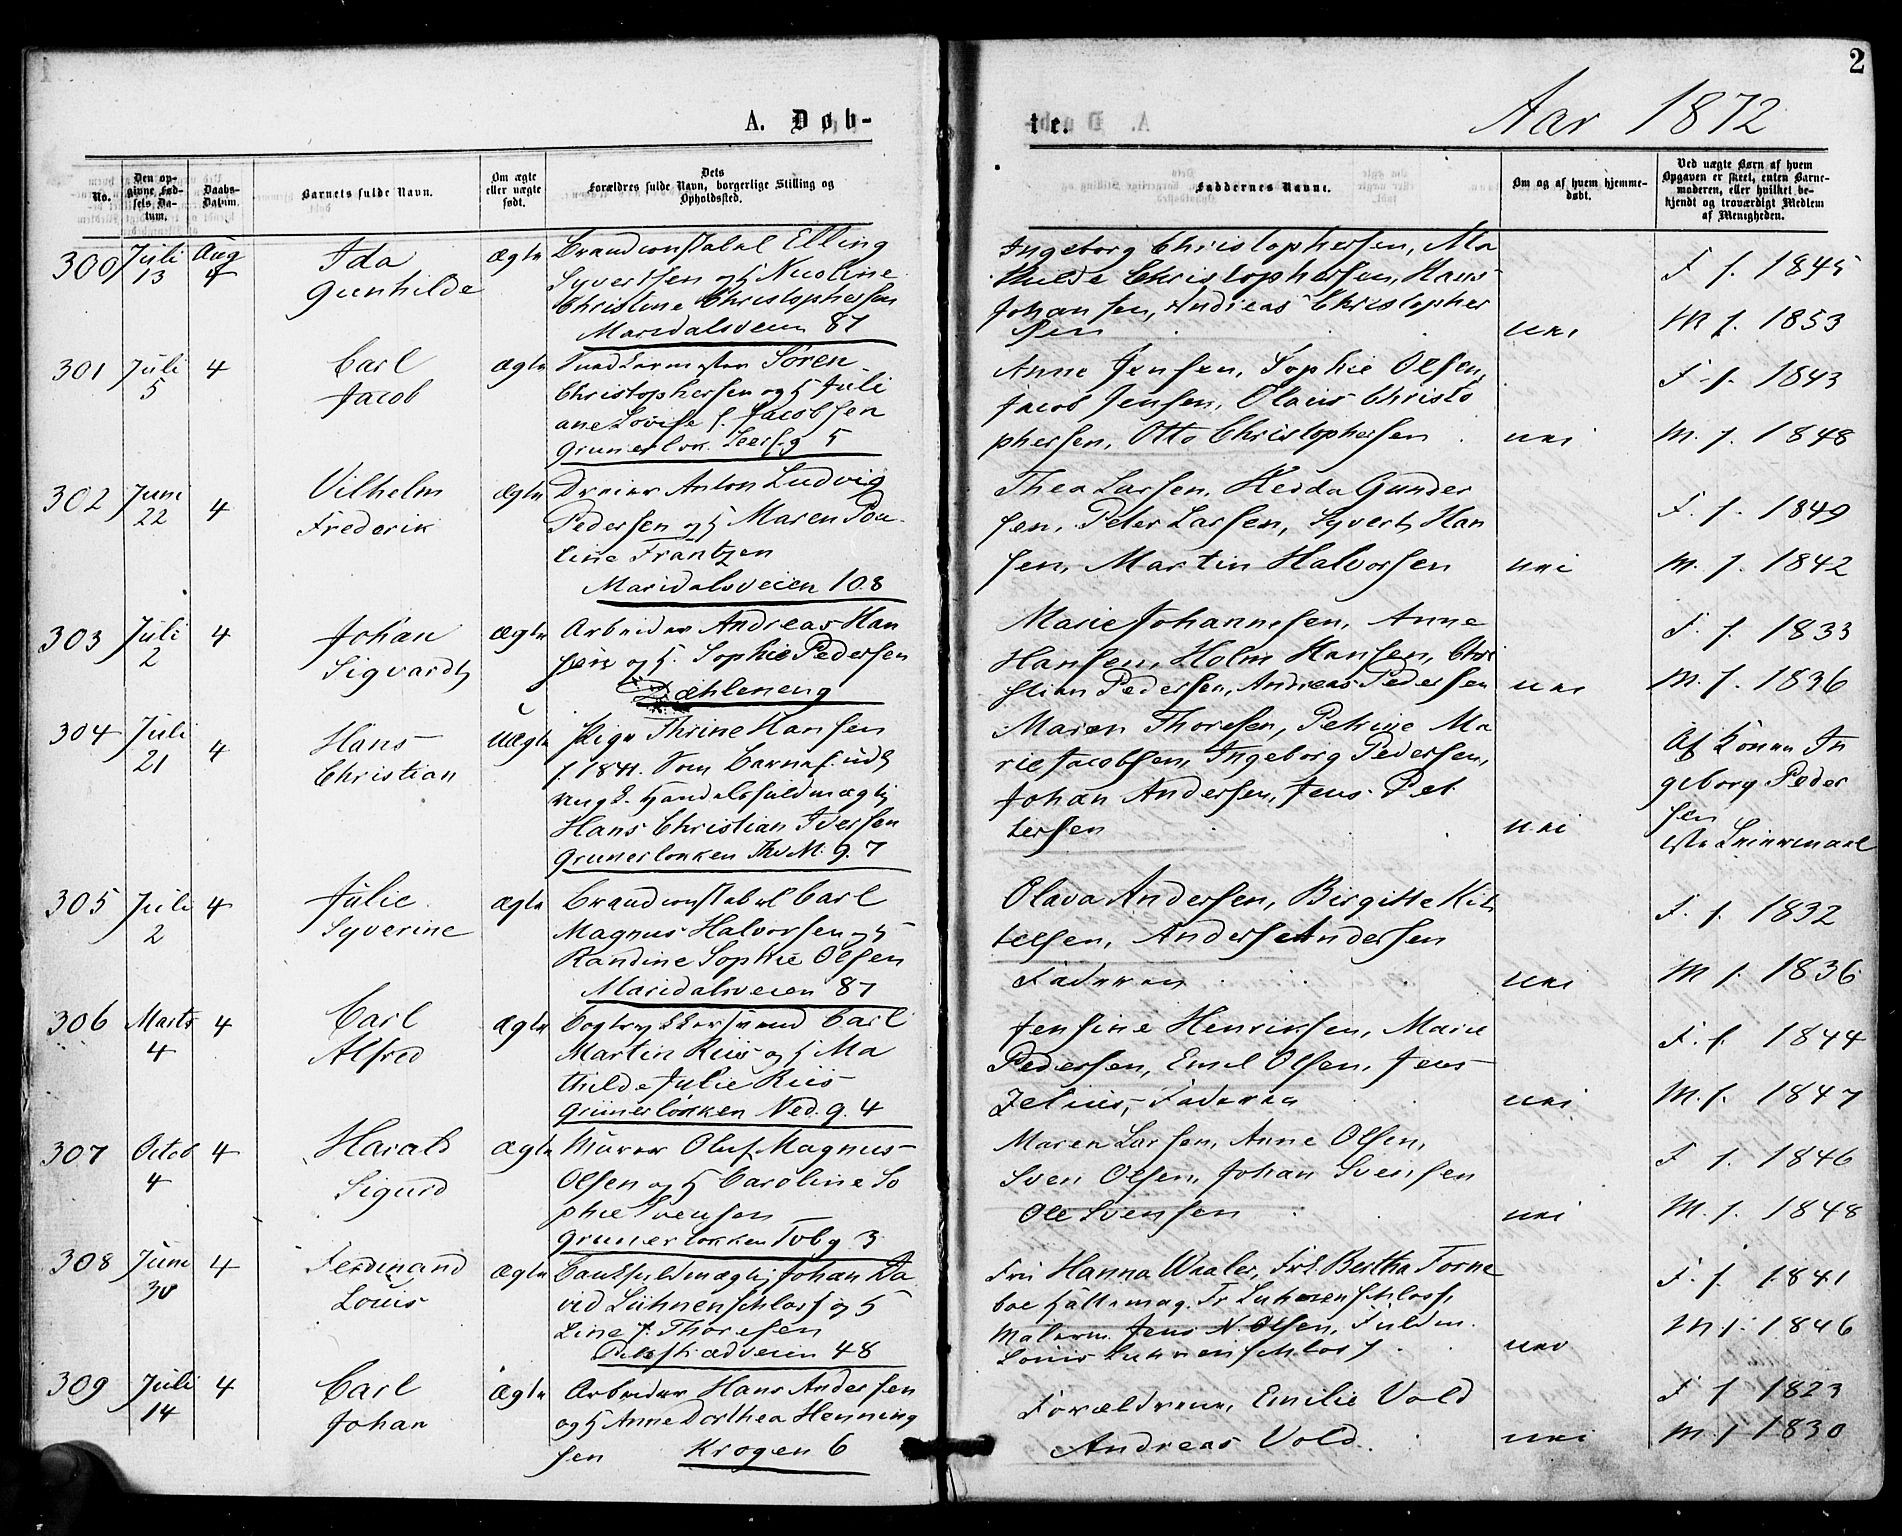 2
A. Døb-
te.
Aar 1872
No.
Den op-
givne Fød-
sels Da-
tum.
Daabs-
Datum.
Barnets fulde Navn.
Om ægte
eller uægte
født.
Dets
Forældres fulde Navn, borgerlige Stilling og
Opholdssted.
Faddernes Navne.
Om og af hvem hjemme-
døbt.
Ved uægte Børn af hvem
Opgaven er skeet, enten Barne-
moderen, eller hvilket be-
kjendt og troværdigt Medlem
af Menigheden.
300 Juli 13 Aug 4
Ida
Gunhilde
Ægte
Brandconstabel Elling
Syvertsen og H Nicoline
Christine Christophersen
Maridalsveien 87
Ingeborg Christophersen, Ma
thilde Christophersen, Hans
Johansen, Andreas Christopher
sen
nei
F f. 1845
M f. 1853
301 Juli 5 4
Carl
Jacob
Ægte
Søren
Christophersen og H Juli
ane Lovise f. Jacobsen
Grunerløk. 5
Anne Jensen, Sophie Olsen,
Jacob Jensen, Olaus Christo
phersen, Otto Christophersen
nei
F. f. 1843
M. f. 1848
302 Juni 22 4
Vilhelm
Frederik
Ægte
Dreier Anton Ludvig
Pedersen og H Maren Pau
line Frantzen
Maridalsveien 108
Thea Larsen, Hedda Gunder
sen, Peter Larsen, Syvert Han
sen, Martin Halvorsen
nei
F. f. 1849
M. f. 1842
303 Juli 2 4
Johan
Sigvardt
Ægte
Arbeider Andreas Han
sen og H. Sophie Pedersen
Dæhleneng
Marie Johannesen, Anne
Hansen, Holm Hansen, Chri
stian Pedersen, Andreas Pedersen
nei
F. f. 1833
M. f. 1836
304 Juli 21 4
Hans
Christian
Uægte
Pige Thrine Hansen
f. 1841. Som Barnef. udl
ungk. Handelsfuldmægtig
Hans Christian Iversen
Grunerløkken Thv M. g. 7
Maren Thoresen, Petrine Ma
rie Jacobsen, Ingeborg Pedersen,
Johan Andersen, Jens Pet
tersen
nei
Af Konen In
geborg Peder
sen
305 Juli 2 4
Julie
Syverine
Ægte
Brandconstabel Carl
Magnus Halvorsen og H
Randine Sophie Olsen
Maridalsveien 87
Olava Andersen, Birgitte Kit
telsen, Anders Andersen
Faderen
nei
F. f. 1832
M f. 1836
306 Marts 4 4
Carl
Alfred
Ægte
Bogtrykkersvend Carl
Martin Riis og H Ma
thilde Julie Riis
Grünerløkken Ned. g. 4
Jensine Henriksen, Marie
Pedersen, Emil Olsen, Jens
Zelius, Faderen
nei
F. f. 1844
M. f. 1847
307 Octob 4 4
Harald
Sigurd
Ægte
Murer Oluf Magnus
Olsen og H Caroline So
phie Svensen
Grunerløkken Tvbg. 3
Maren Larsen, Anne Olsen,
Sven Olsen, Johan Svensen
Ole Svensen
nei
F f. 1846
M. f. 1848
308 Juni 30 4
Ferdinand
Louis
Ægte
Bankfuldmægtig Johan Da
vid Lühnenschloss og H
Line f. Thoresen
48
Fru Hanna Waaler, Frk Bertha Torne
boe Lühnenschloss,
Malerm. Jens N. Olsen, Fuldm.
Louis Luhnenschloss
nei
F. f. 1841
M f. 1846
309 Juli 14 4
Carl
Johan
Ægte
Arbeider Hans Andersen
og H Anne Dorthea Henning
sen Krogen 6
Forældrene, Emilie Vold
Andreas Vold.
nei
F f 1823
M. f 1830